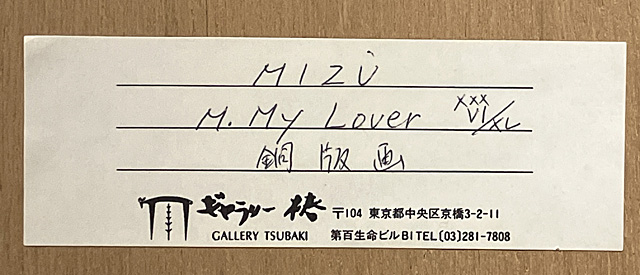 MIZÙ
M. My Lover XXXVI/XL
銅版画
ギャラリー椿 〒104 東京都中央区京橋3-2-11
GALLERY TSUBAKI 第百生命ビルB1 TEL(03)281-7808